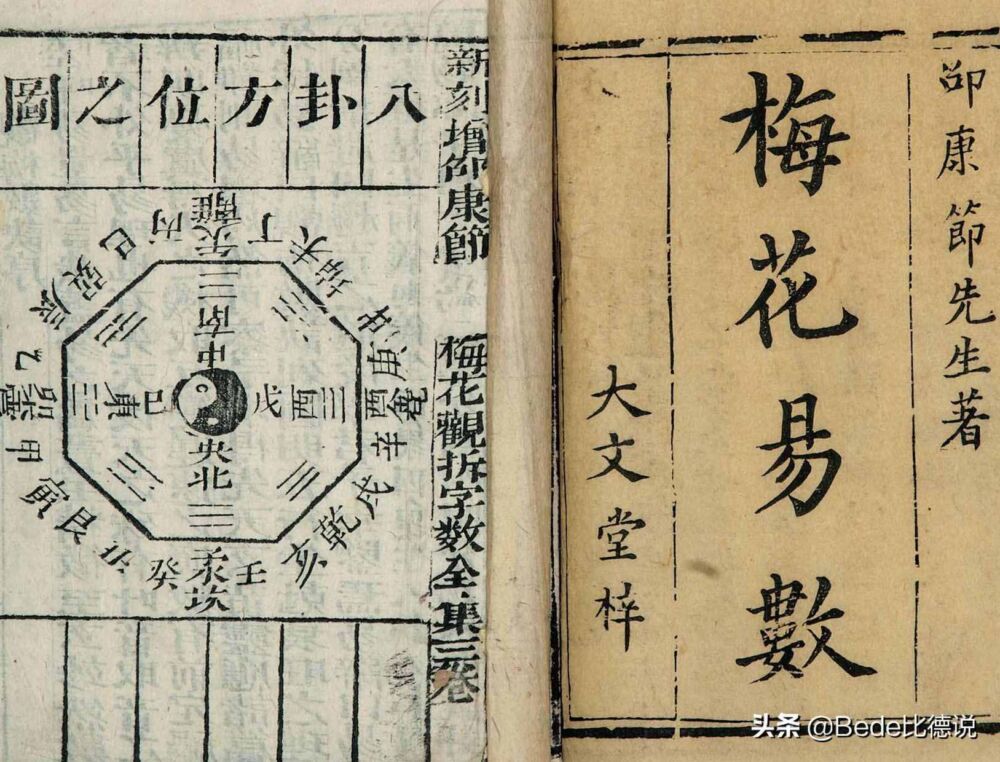 邵康節先生著
梅花易數
大文堂梓
新刻增邵康節 梅花觀拆字数全集三卷
八卦方位之圖
丙
離
丁
未
坤
申
庚
酉
辛
戌
乾
亥
壬
坎
癸
艮
寅
甲
乙
巽
巳
南
中
東
巳
戊
酉
央
北
头条 @Bede比德说